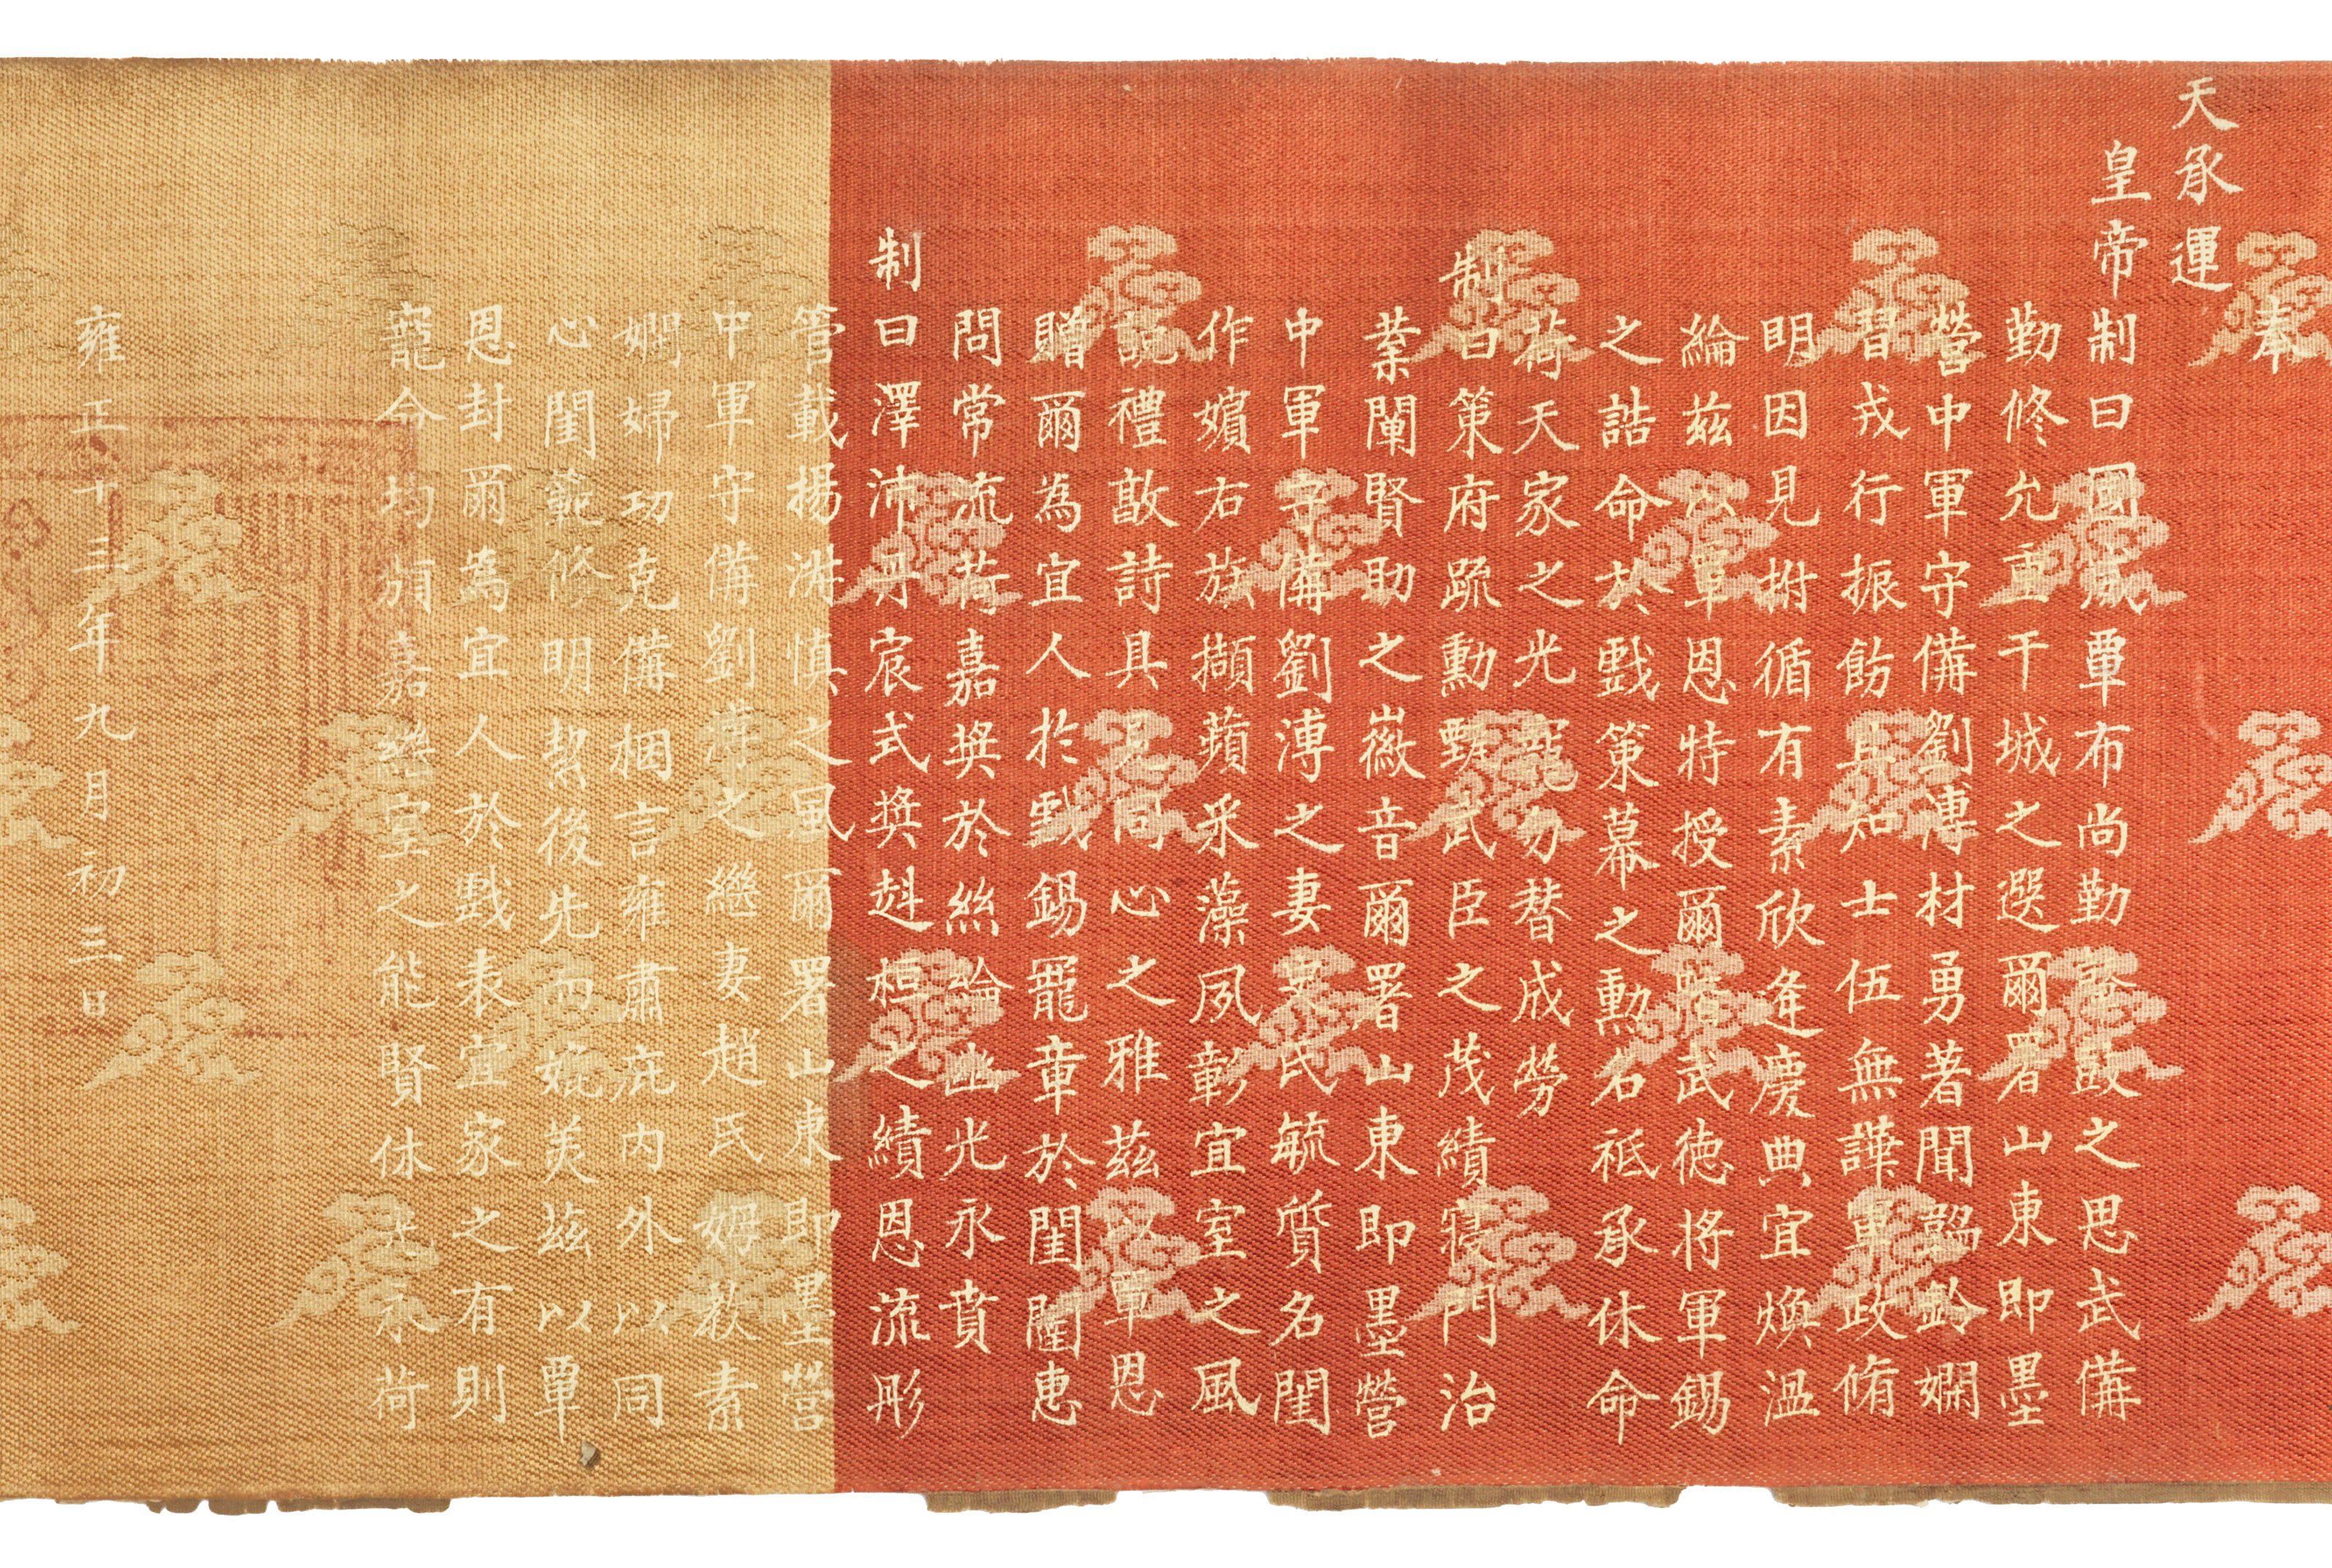 奉
天承運
皇帝制曰國威覃布尚勤鼙鼓之思武備
勤修允重干城之選爾署山東即墨
營中軍守備劉漙材勇著聞韜鈐嫻
習戎行振飭知士伍無譁軍政脩
明因見拊循有素欣逢慶典宜煥溫
綸茲以覃恩特授爾階武德將軍錫
之誥命於戲策幕之勳名祗承休命
荷天家之光龍勿替成勞
制曰策府疏勳甄武臣之茂績寢門治
業闡賢助之徽音爾署山東即墨營
中軍守備劉漙之妻氏毓質名閨
作嬪右族擷蘋采藻夙彰宜室之風
說禮敦詩具見同心之雅茲以覃恩
贈爾為宜人於戲錫寵章於閨閫惠
問常流荷嘉奬於絲綸幽光永賁
制曰澤沛丹宸式奬赳桓之績恩流彤
管載揚淑慎之風爾署山東即墨營
中軍守備劉漙之繼妻趙氏姆教素
嫻婦功克備梱言雍肅庇內外以同
心閨範修明絜後先而媲美茲以覃
恩封爾為宜人於戲表宜家之有則
寵令均頒嘉繼室之能賢休光永荷
雍正十三年九月初三日